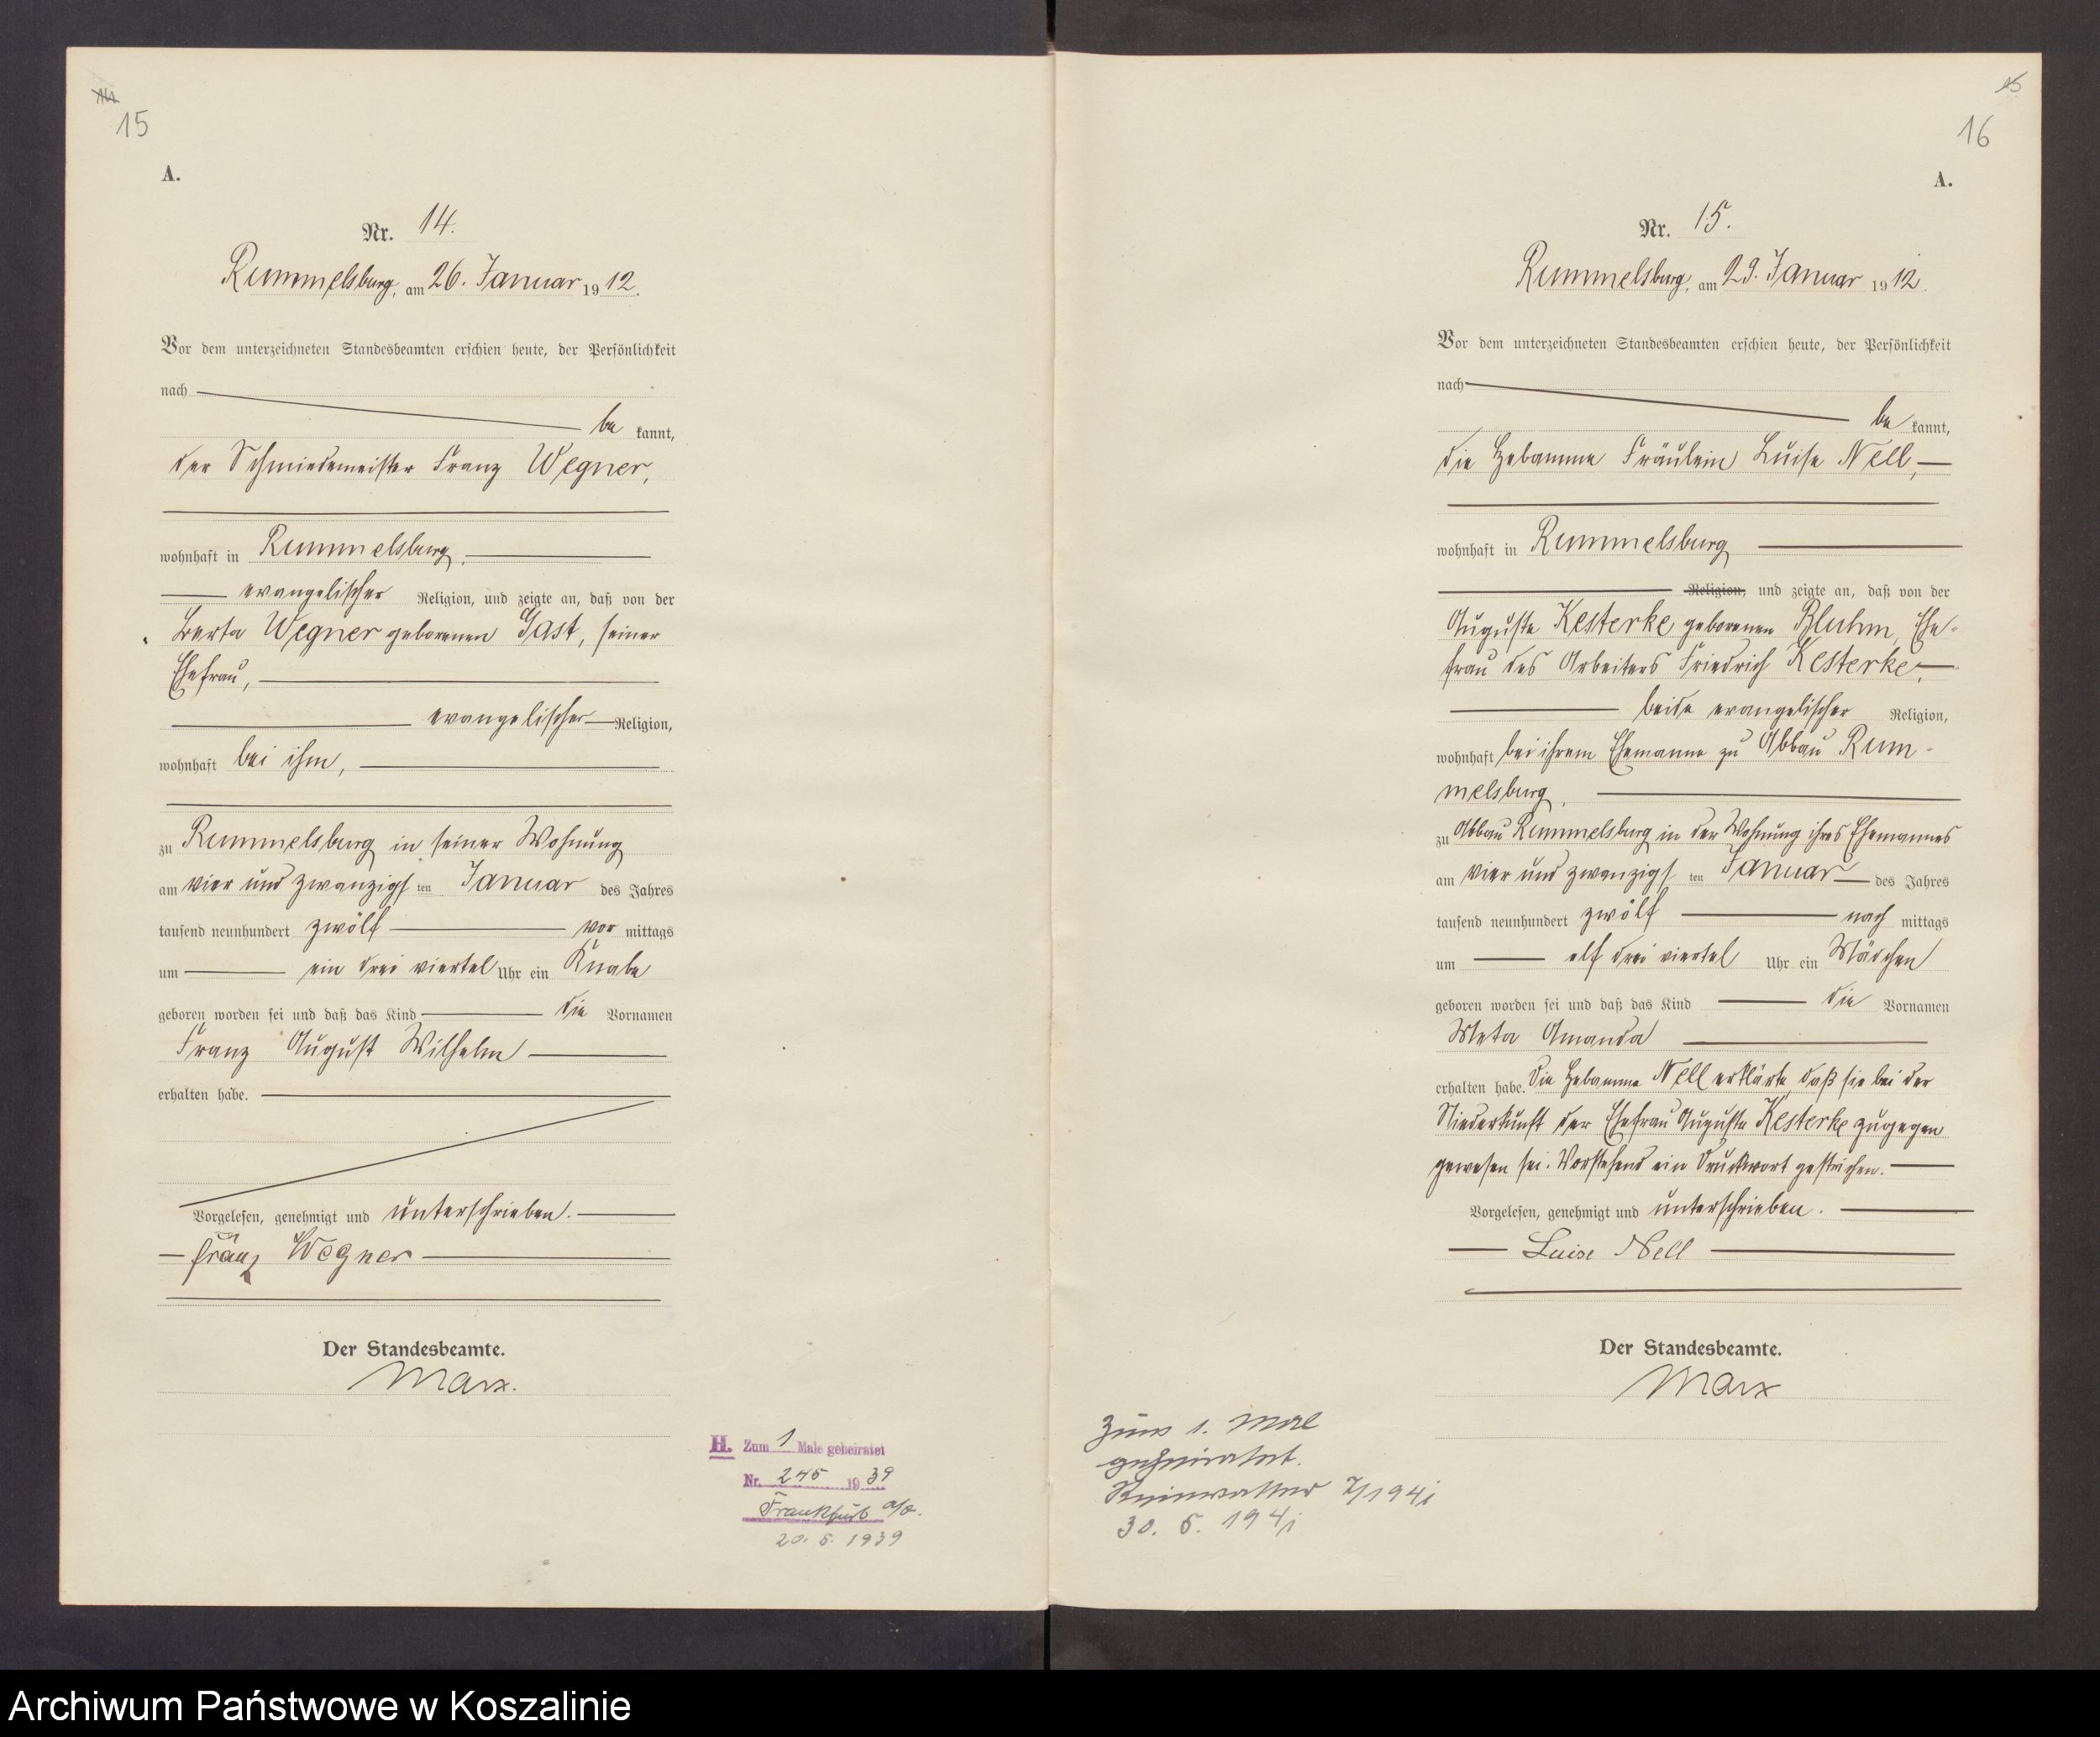 14
15
A.
Nr. 14.
Rummelsburg, am 26. Januar 1912.
Vor dem unterzeichneten Standesbeamten erschien heute, der Persönlichkeit
nach
be kannt,
der Schmiedemeister Franz Wegner,
wohnhaft in Rummelsburg,
evangelischer Religion, und zeigte an, daß von der
Berta Wegner geborenen Gast, seiner
Ehefrau,
evangelischer Religion,
wohnhaft bei ihm,
zu Rummelsburg in seiner Wohnung
am vier und zwanzigsten Januar des Jahres
tausend neunhundert zwölf vor mittags
um ein drei viertel Uhr ein Knabe
geboren worden sei und daß das Kind die Vornamen
Franz August Wilhelm
erhalten habe.
Vorgelesen, genehmigt und unterschrieben.
Franz Wegner
Der Standesbeamte.
Marx.
H. Zum 1 Male geheiratet
Nr. 245 1939
Frankfurt a/O.
20. 5. 1939
15
16
A.
Nr. 15.
Rummelsburg, am 29. Januar 1912.
Vor dem unterzeichneten Standesbeamten erschien heute, der Persönlichkeit
nach
be kannt,
die Hebamme Fräulein Luise Nell,
wohnhaft in Rummelsburg
Religion, und zeigte an, daß von der
Auguste Kesterke geborenen Bluhm, Ehe-
frau des Arbeiters Friedrich Kesterke,
beide evangelischer Religion,
wohnhaft bei ihrem Ehemanne zu Abbau Rum-
melsburg,
zu Abbau Rummelsburg in der Wohnung ihres Ehemannes
am vier und zwanzigsten Januar des Jahres
tausend neunhundert zwölf nach mittags
um elf drei viertel Uhr ein Mädchen
geboren worden sei und daß das Kind die Vornamen
Meta Amanda
erhalten habe. Die Hebamme Nell erklärte, daß sie bei der
Niederkunft der Ehefrau Auguste Kesterke zugegen
gewesen sei. Vorstehend ein Druckwort gestrichen.
Vorgelesen, genehmigt und unterschrieben.
Luise Nell
Der Standesbeamte.
Marx
Zum 1. Mal
geheiratet.
7/1941
30. 5. 1941
Archiwum Państwowe w Koszalinie